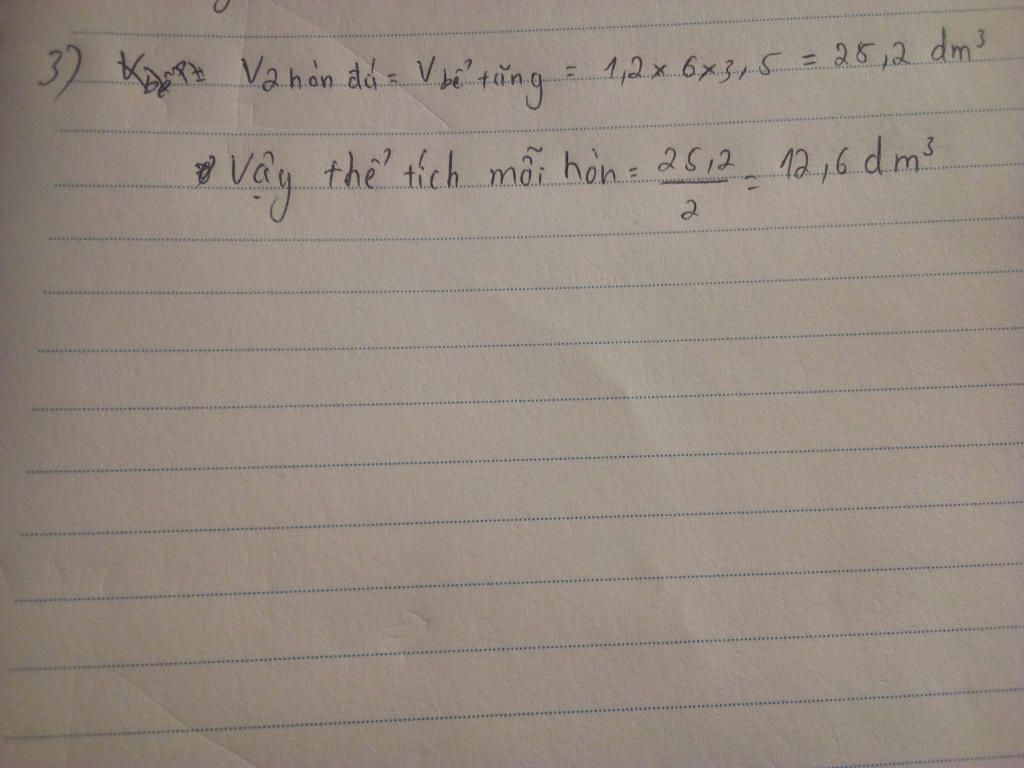 3) V2 hòn đá = V bể tăng = 1,2 x 6 x 3,5 = 25,2 dm³
Vậy thể tích mỗi hòn = 25,2 / 2 = 12,6 dm³